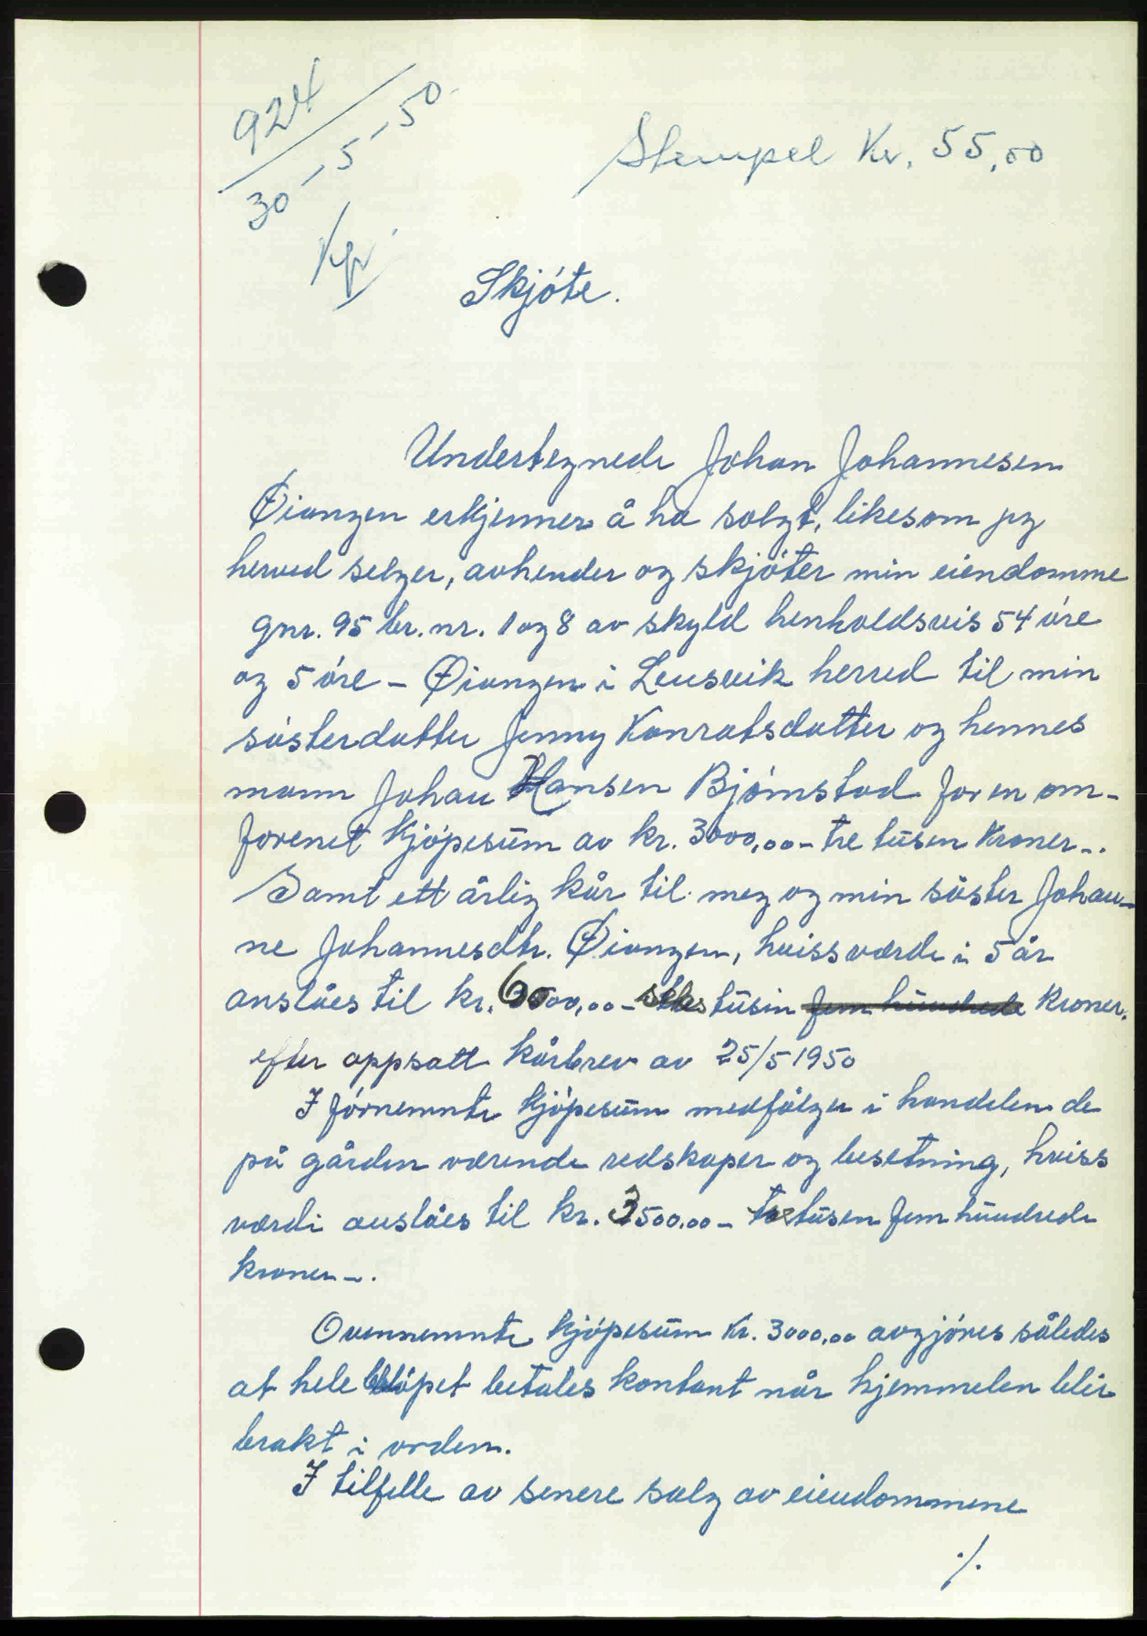 924
30-5-50.
Stempel Kr. 55,00
Skjöte.
Undertegnede Johan Johannesen
Øiangen erkjenner å ha solgt, likesom jeg
herved selger, avhender og skjöter min eiendomme
gnr. 95 br. nr. 1 og 8 av skyld henholdsvis 54 öre
og 5 öre - Øiangen i Leusvik herred til min
sösterdatter Jenny Konratsdatter og hennes
mann Johan Hansen Bjørnstad for en om-
forenet kjöpesum av kr. 3000,00 - tre tusen kroner -.
Samt ett årlig kår til meg og min söster Johan-
ne Johannesdtr. Øiangen, hvissværde i 5 år
anslåes til kr. 6000,00 - seks tusin fem hundrede kroner.
efter oppsatt kårbrev av 25/5 1950
I förnemnte kjöpesum medfölger i handelen de
på gården værende redskaper og besetning, hviss
verdi anslåes til kr. 3500,00 - tre tusen fem hundrede
kroner -.
Ovennemnte kjöpesum kr. 3000,00 avgjöres således
at hele belöpet betales kontant når hjemmelen blir
brakt i orden.
I tilfelle av senere salg av eiendommene
./.